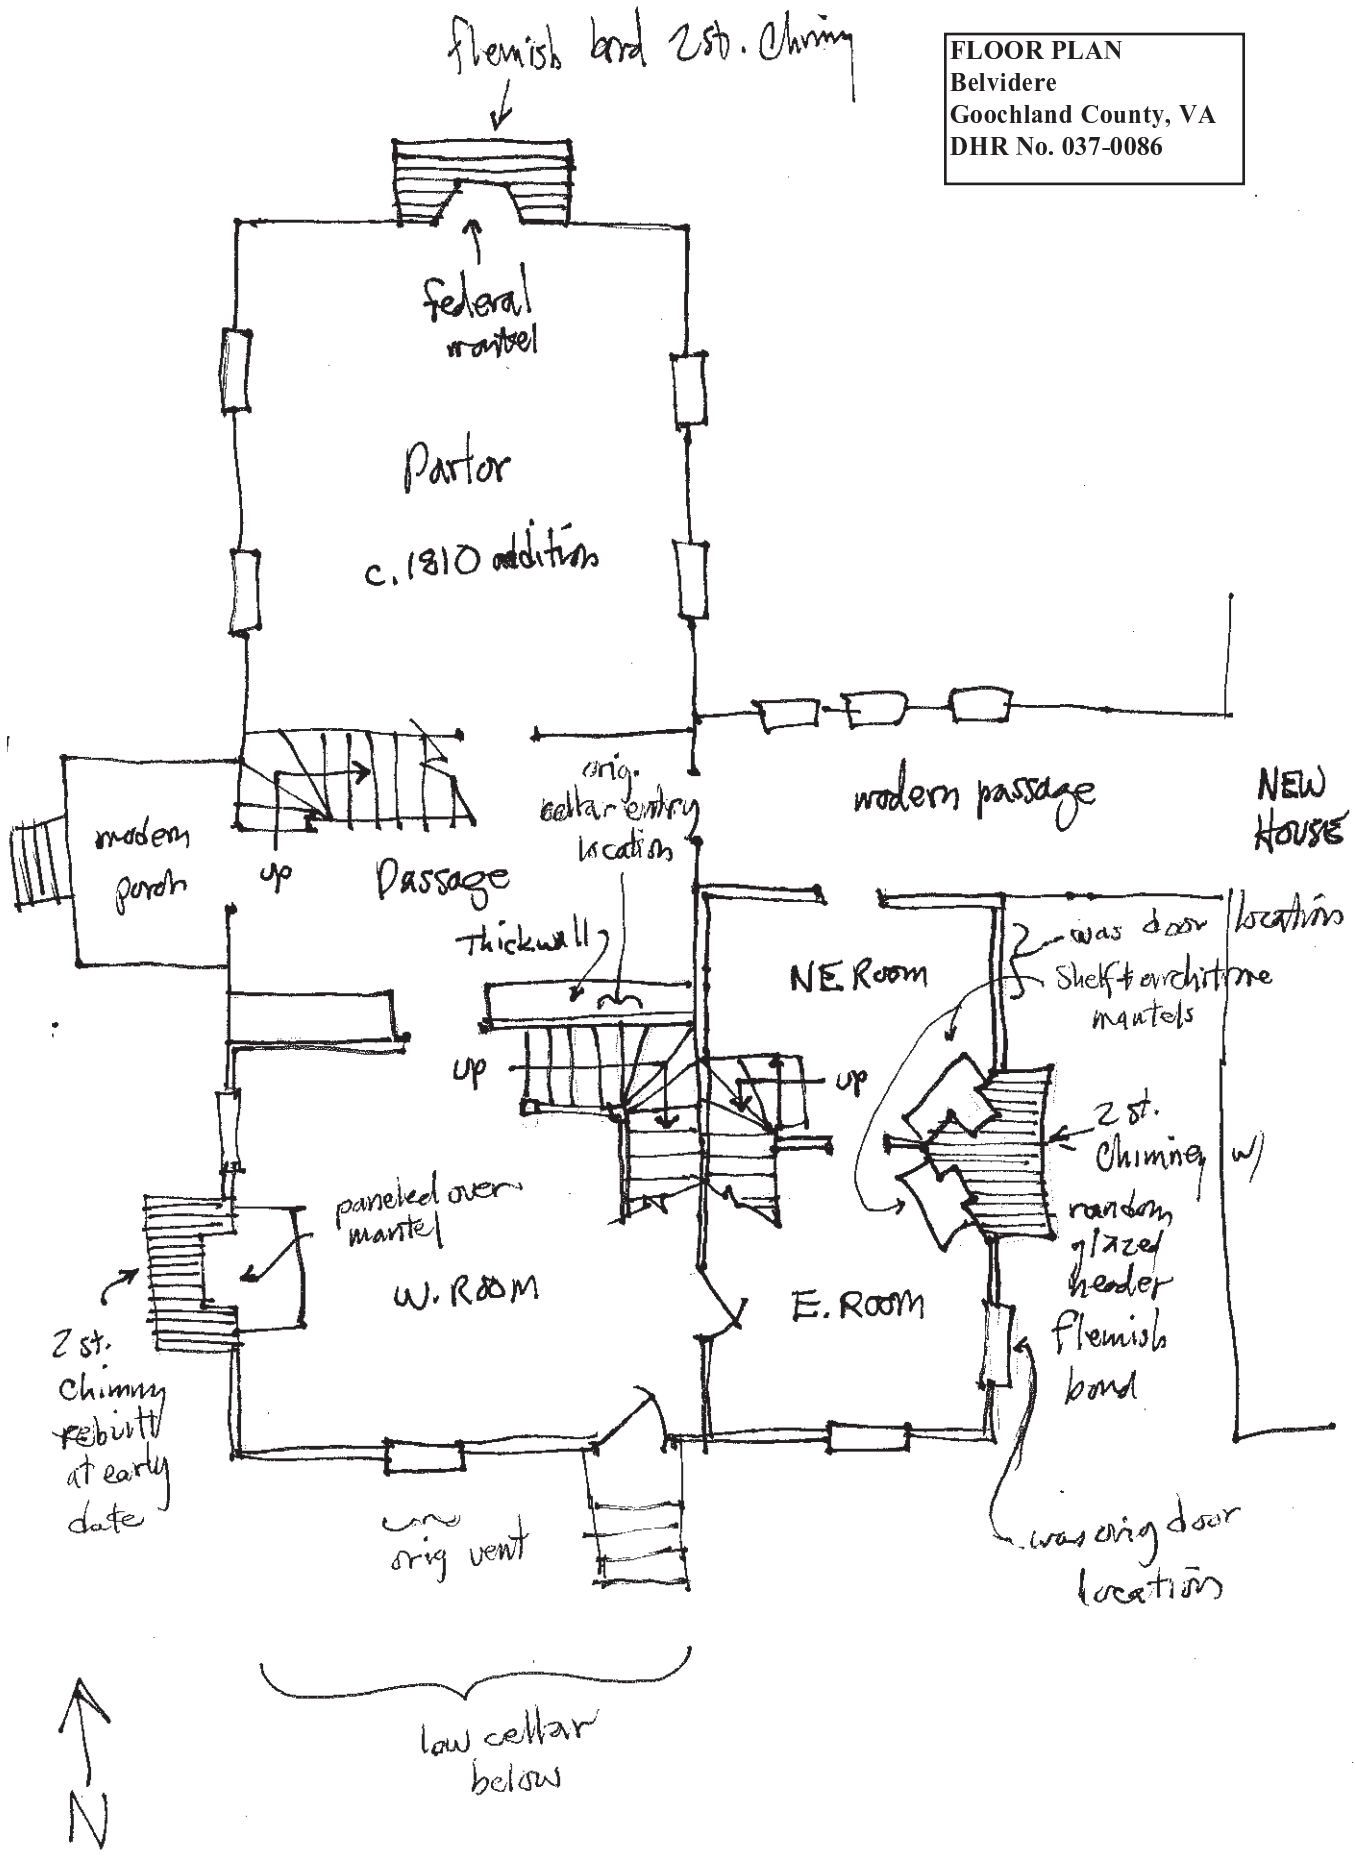 flemish bond 2st. Chimny
FLOOR PLAN
Belvidere
Goochland County, VA
DHR No. 037-0086
federal
mantel
Parlor
c. 1810 addition
orig.
cellar entry
location
modern passage
NEW
HOUSE
location
modern
porch
up
Passage
Thick wall
was door
NE ROOM
Shelf & architrave
mantels
up
up
2 st.
Chimney w/
random
glazed
header
flemish
bond
paneled over
mantel
W. ROOM
E. ROOM
2 st.
Chimny
rebuilt
at early
date
orig vent
was orig door
location
low cellar
below
N